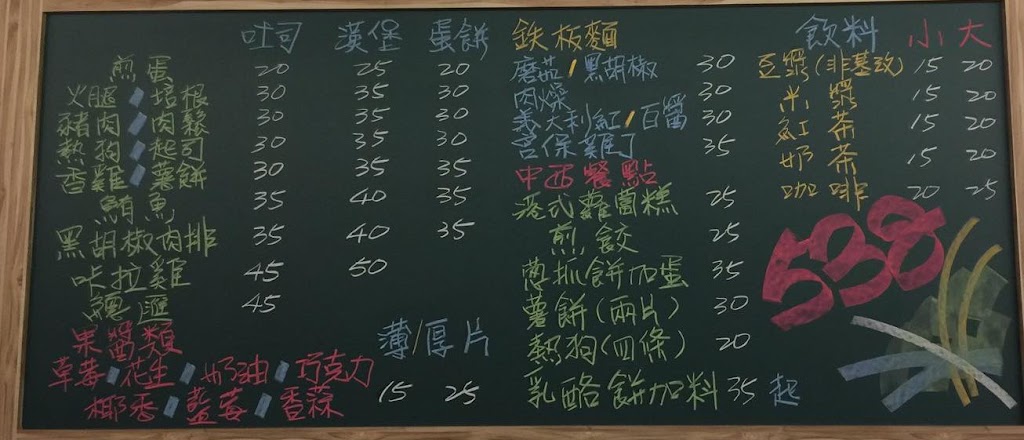 吐司 漢堡 蛋餅
煎蛋 20 25 20
火腿/培根 30 35 30
豬肉/肉鬆 30 35 30
熱狗/起司 30 35 30
香雞/薯餅 30 35 35
鮪魚 35 40 35
黑胡椒肉排 35 40 35
咔拉雞 45 50
總匯 45
果醬類 薄/厚片
草莓/花生/奶油/巧克力
椰香/藍莓/香蒜 15 25
鉄板麵
磨菇/黑胡椒 30
肉燥 30
義大利紅/百醬 30
宮保雞丁 35
中西餐點
港式蘿蔔糕 25
煎餃 25
蔥抓餅加蛋 35
薯餅(兩片) 30
熱狗(四條) 20
乳酪餅加料 35 起
飲料 小 大
豆漿(非基改) 15 20
米漿 15 20
紅茶 15 20
奶茶 15 20
咖啡 20 25
538